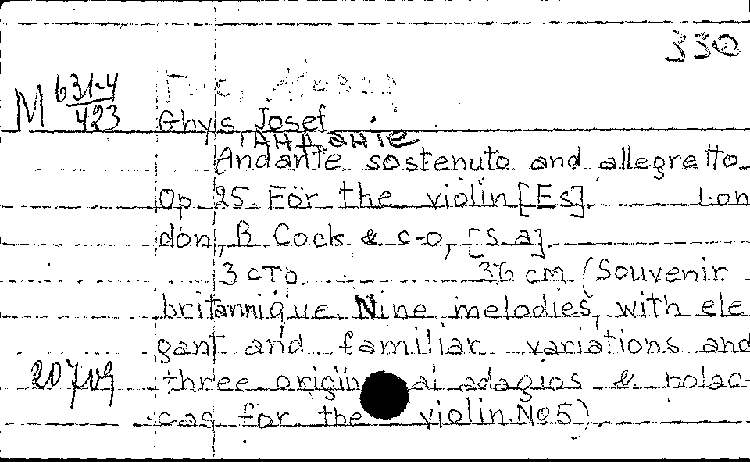 330
M 631-4
423
Ghys Josef
Andante sostenuto and allegretto
Op. 25 For the violin [Es]. Lon
don, R Cock & c-o, [s.a].
3 cтр. 36 cm (Souvenir
britannique. Nine melodies, with ele
gant and familiar variations and
three origin ai adagios & polac
cas for the violin. No5)
20709